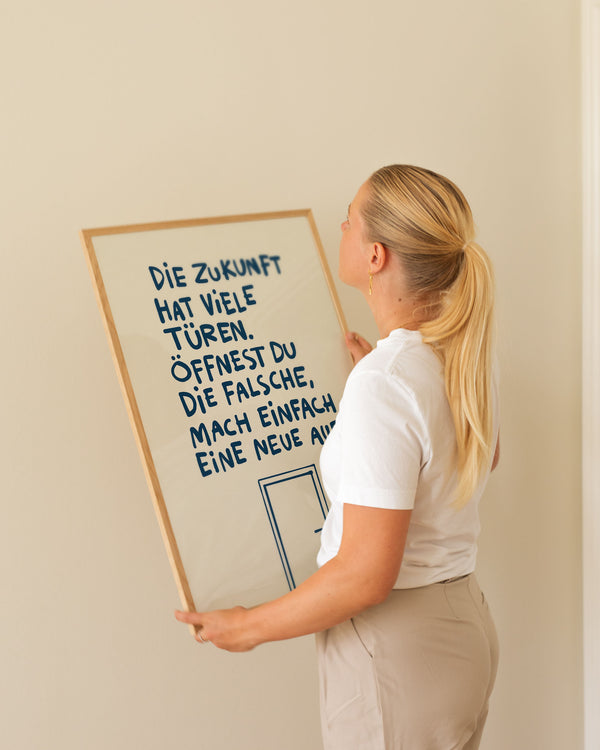 DIE ZUKUNFT
HAT VIELE
TÜREN.
ÖFFNEST DU
DIE FALSCHE,
MACH EINFACH
EINE NEUE AUF